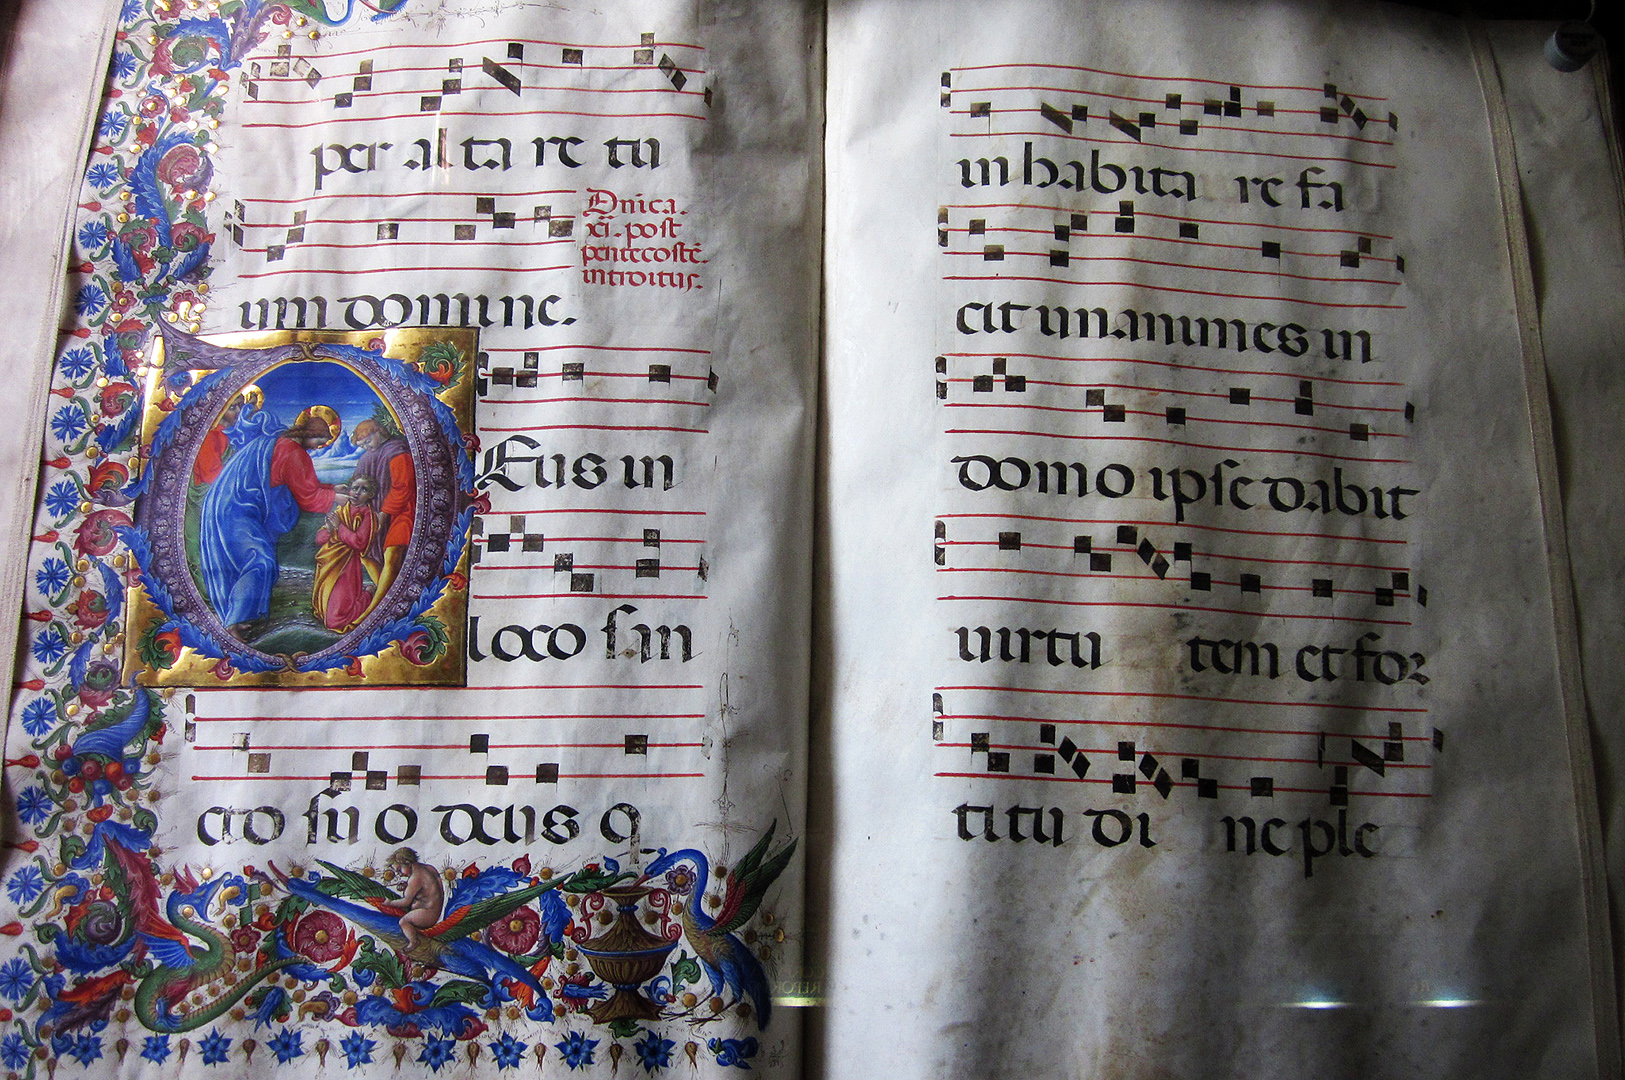 per al ta re tu
um domine.
Dnica.
xi. post
pentecostē.
introitus.
DEus in
loco san
cto su o deus q
in habita re fa
cit unanimes in
domo ipse dabit
uirtu tem et for
titu di ne ple